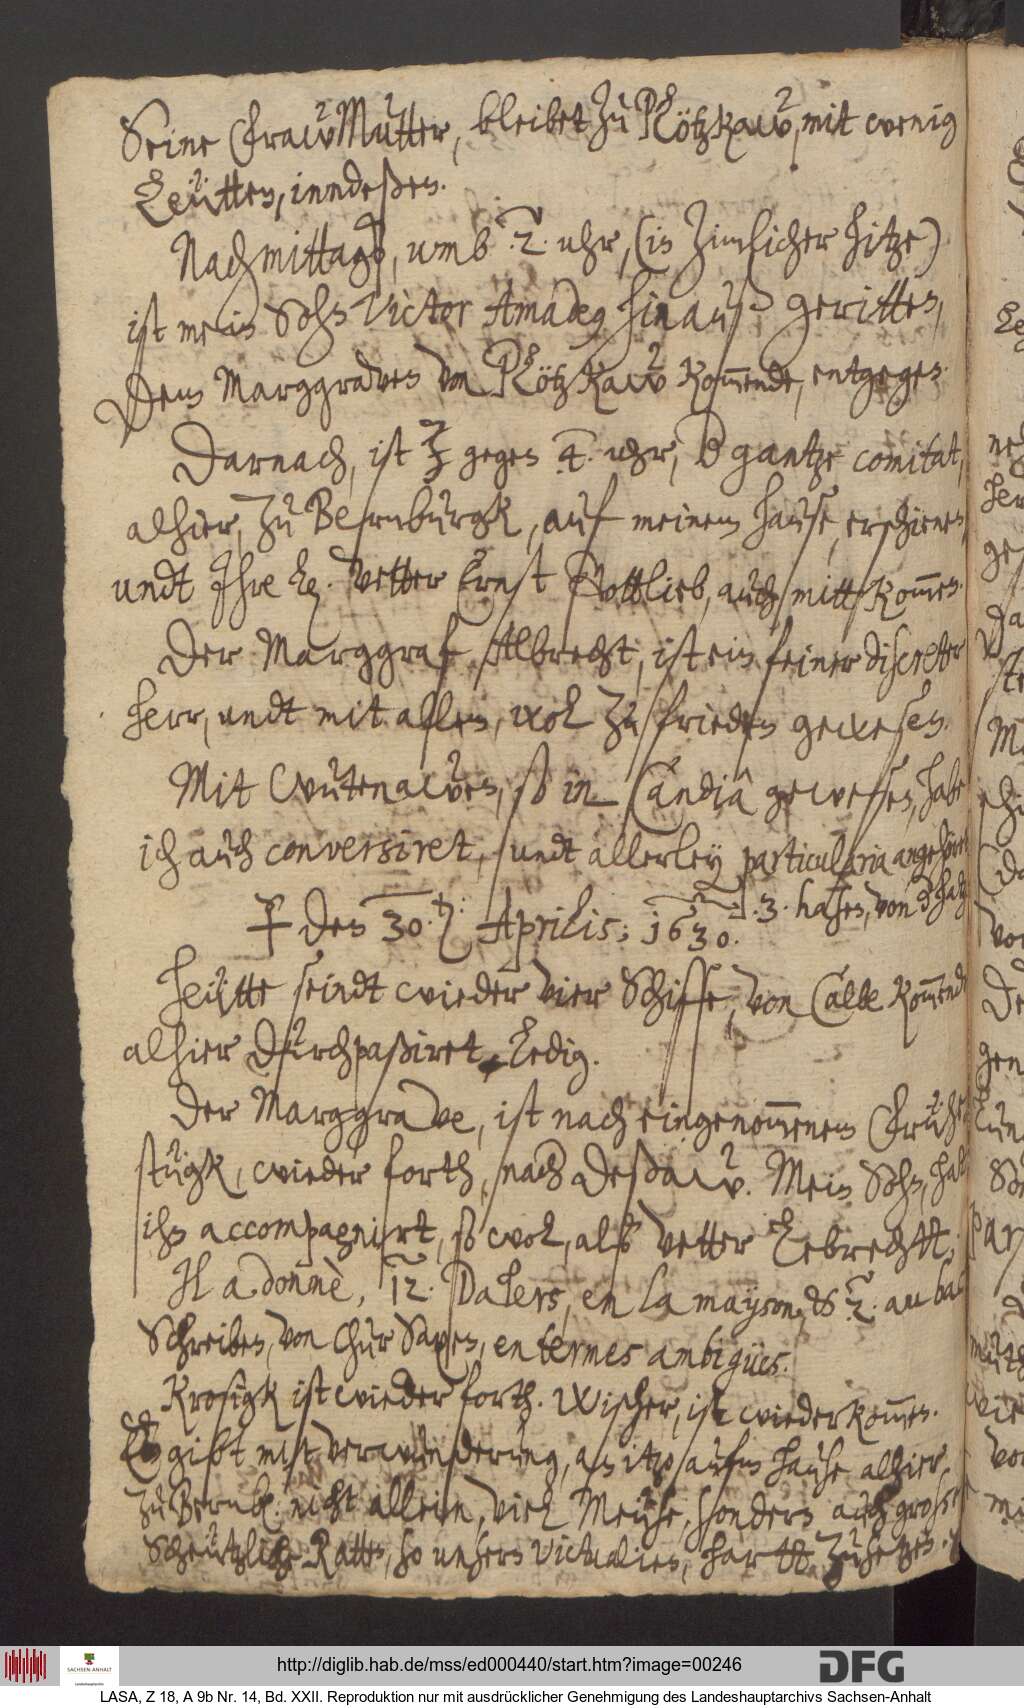 Seine FrawMutter, bleibet zu Plötzkaw, mit wenig
Leütten, inndeßen.
Nachmittags, umb .2. uhr, (in zimlicher hitze)
ist mein Sohn Victor Amadeg hinauß geritten,
Dem Marggraven von Plötzkaw kom̄ende, entgegen.
Darnach, ist gegen 4. uhr, d gantze comitat,
alhier, zu Bernburgk, auf meinem hause, erschienen,
undt Ihre L. Vetter Ernst Gottlieb, auch mitt kom̄en.
Der Marggraf Albrecht, ist ein feiner discretter
herr, undt mit allem, wol zu frieden gewesen.
Mit Wutenawen, so in Candia gewesen, habe
ich auch conversiret, undt allerley particularia angehöret
3. hasen, von d hatz
Den 30. Aprilis; 1650.
Heütte seindt wieder vier Schiffe, von Calbe kom̄ende
alhier durchpaßiret, Ledig.
Der Marggrave, ist nach eingenom̄enem Frühe
stügk, wieder forth, nach Deßaw. Mein Sohn, hat
ihn accompagnirt, so wol, alß Vetter Lebrecht;
Il a donnè, 12. Dalers, en la mayson, & 2. au bac
Schreiben, von Chur Saxen, en termes ambigües.
Krosigk ist wieder forth. Wischer, ist wiederkom̄en.
Es gibt mit verwunderung, an itzo aufm hause alhier,
zu Bernb. nicht allein, viel Meüse, sondern auch große
scheützliche Ratten, so unsern Victualien, hartt zusetzen.
http://diglib.hab.de/mss/ed000440/start.htm?image=00246
SACHSEN-ANHALT
DFG
LASA, Z 18, A 9b Nr. 14, Bd. XXII. Reproduktion nur mit ausdrücklicher Genehmigung des Landeshauptarchivs Sachsen-Anhalt